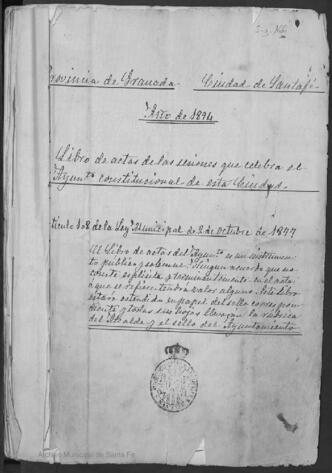 Provincia de Granada Ciudad de Santafé
Año de 1894
Libro de actas de las sesiones que celebra el
Ayuntº constitucional de esta Ciudad.
Artículo 108 de la Ley Municipal de 2 de Octubre de 1877
El Libro de actas del Ayuntº es un instrumen
to público y solemne. Ningun acuerdo que no
conste explícita y terminantemente en el acta
que se refiere tendrá valor alguno. Este libro
estará estendido en papel del sello correspon
diente y todas sus hojas llevarán la rúbrica
del Alcalde y el sello del Ayuntamiento
Archivo Municipal de Santa Fe